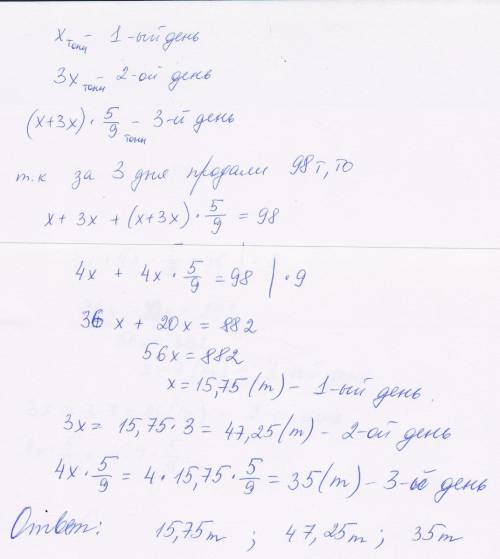 x тонн – 1-ый день
3x тонн – 2-ой день
(x+3x) · 5/9 тонн – 3-й день
т.к за 3 дня продали 98т, то
x + 3x + (x+3x) · 5/9 = 98
4x + 4x · 5/9 = 98 | · 9
36 x + 20x = 882
56x = 882
x = 15,75 (т) – 1-ый день.
3x = 15,75 · 3 = 47,25 (т) – 2-ой день
4x · 5/9 = 4 · 15,75 · 5/9 = 35 (т) – 3-ий день
Ответ: 15,75т ; 47,25т ; 35т